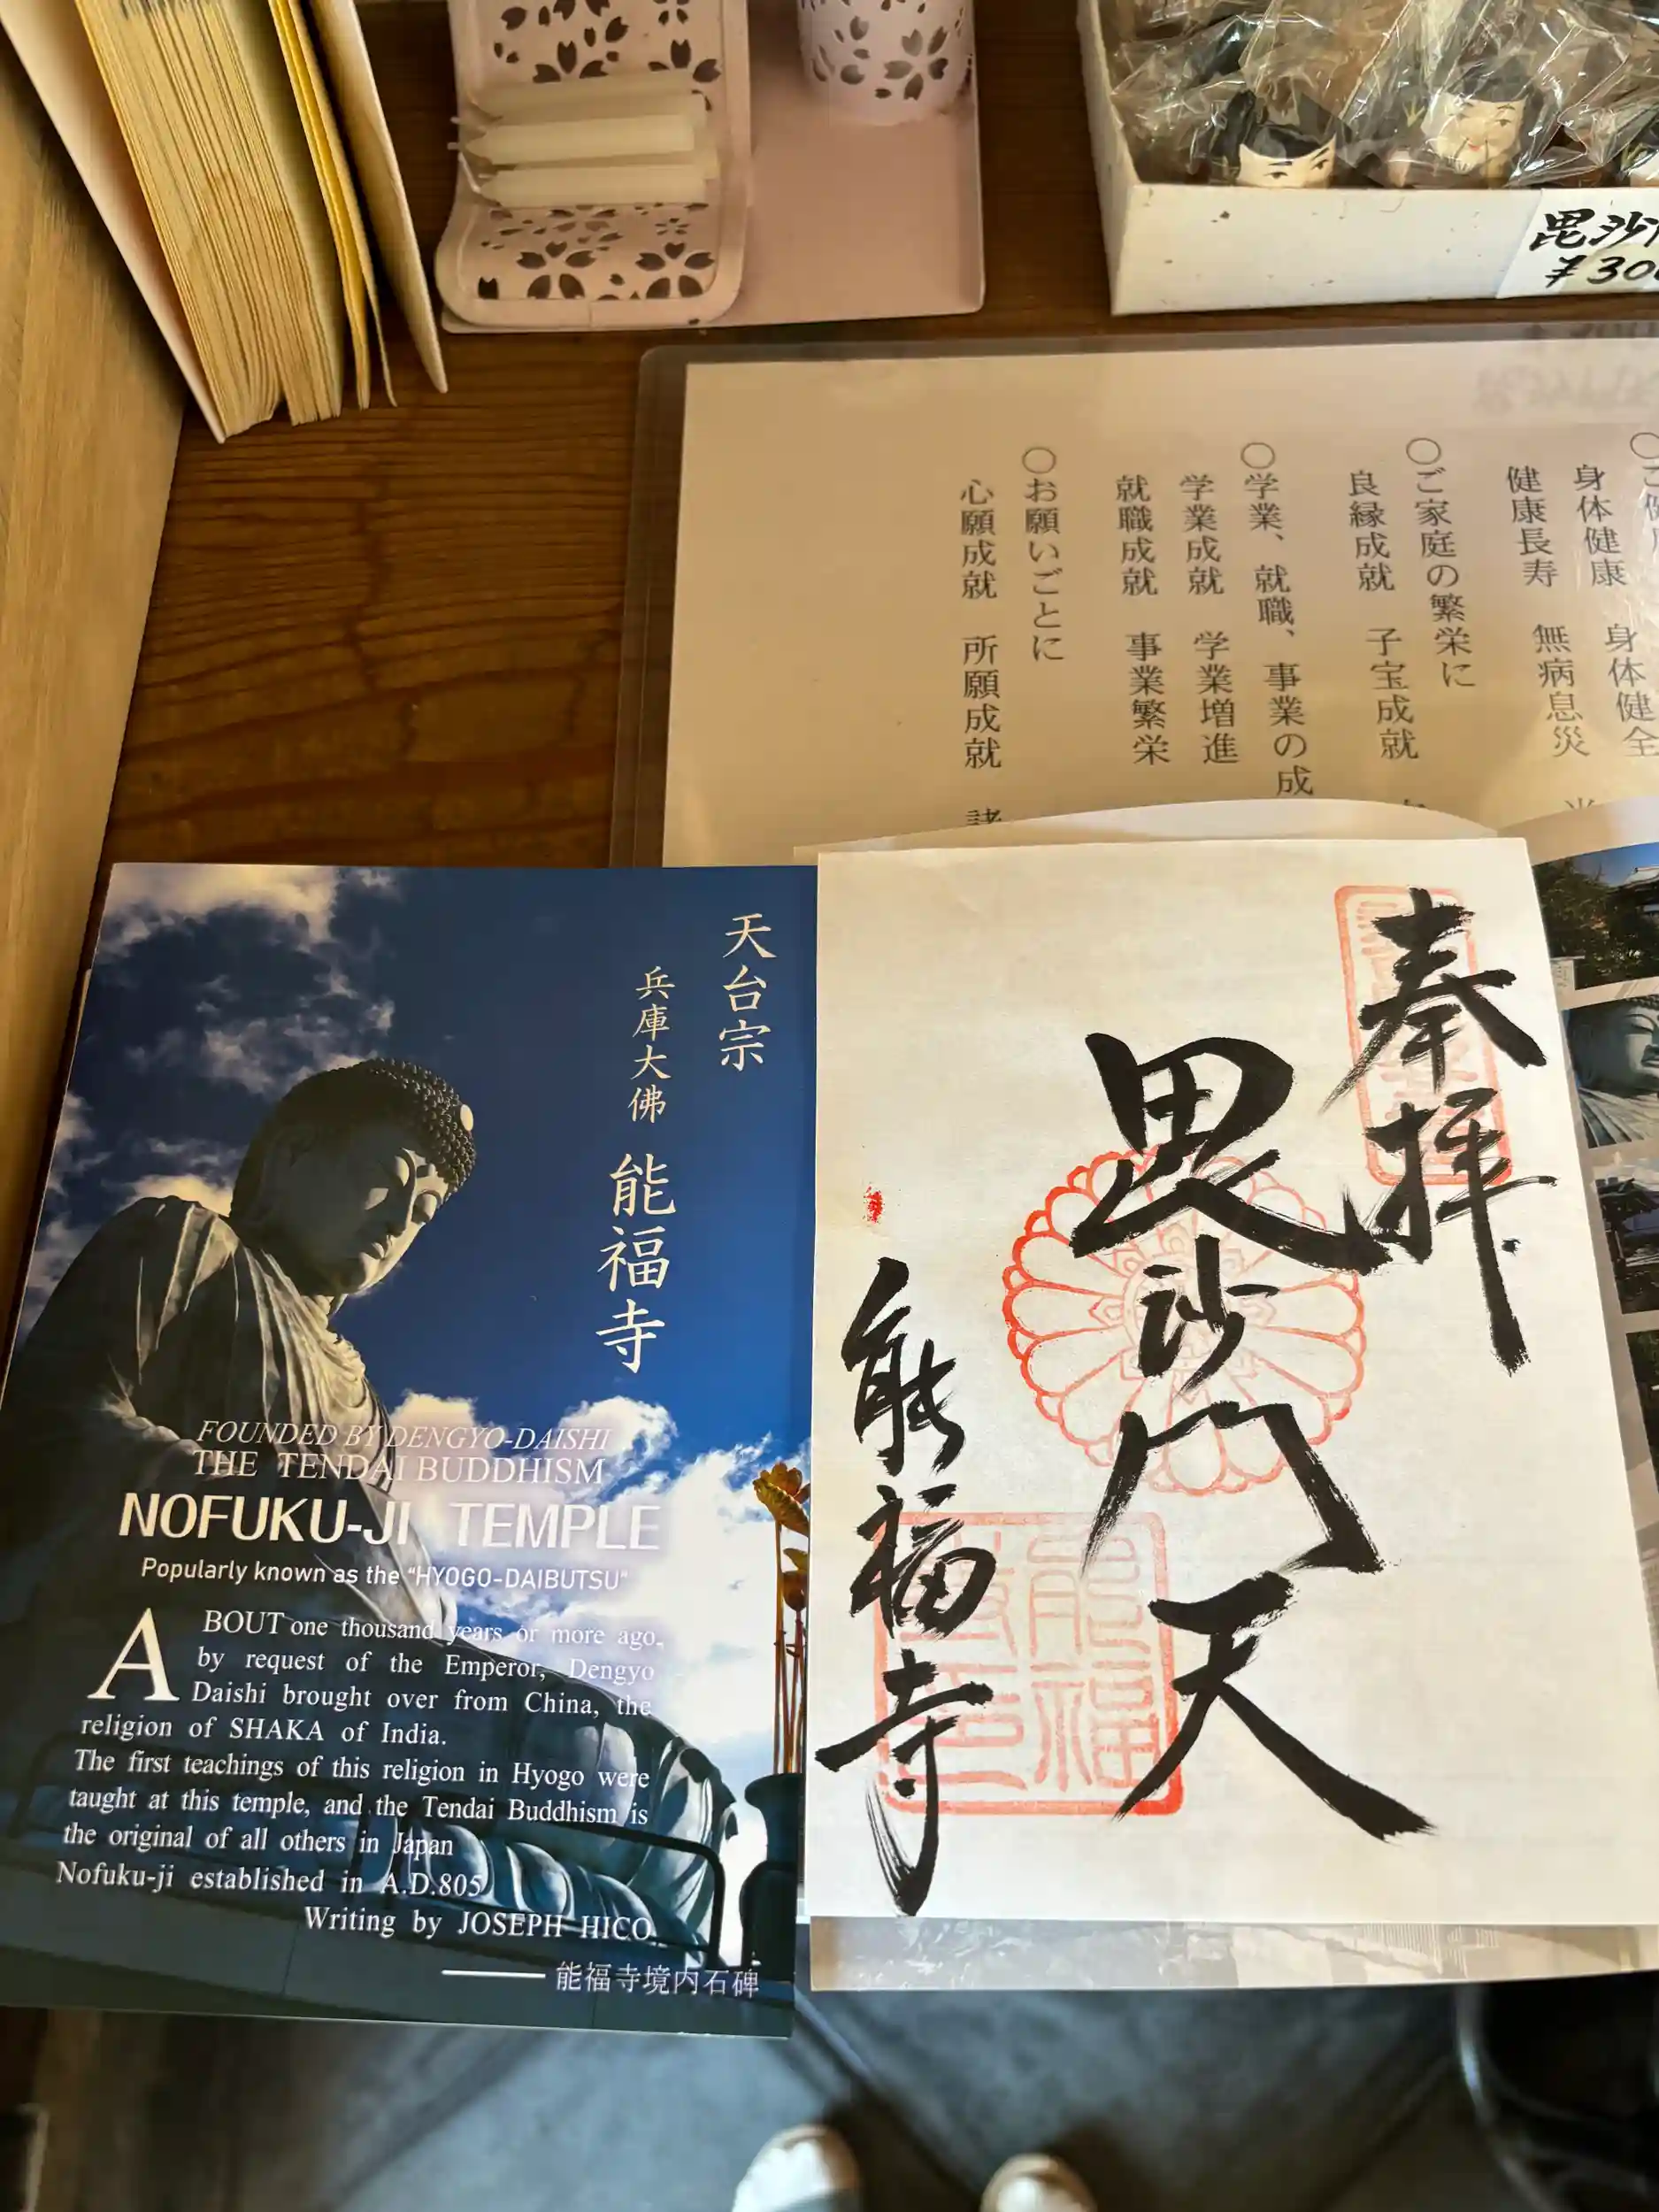 毘沙
¥300
身体健康 身体健全
健康長寿 無病息災
○ご家庭の繁栄に
良縁成就 子宝成就
○学業、就職、事業の成
学業成就 学業増進
就職成就 事業繁栄
○お願いごとに
心願成就 所願成就 諸
天台宗
兵庫大佛 能福寺
FOUNDED BY DENGYO-DAISHI
THE TENDAI BUDDHISM
NOFUKU-JI TEMPLE
Popularly known as the "HYOGO-DAIBUTSU"
ABOUT one thousand years or more ago,
by request of the Emperor, Dengyo
Daishi brought over from China, the
religion of SHAKA of India.
The first teachings of this religion in Hyogo were
taught at this temple, and the Tendai Buddhism is
the original of all others in Japan
Nofuku-ji established in A.D.805
Writing by JOSEPH HICO.
能福寺境内石碑
奉拝
毘沙門天
能福寺